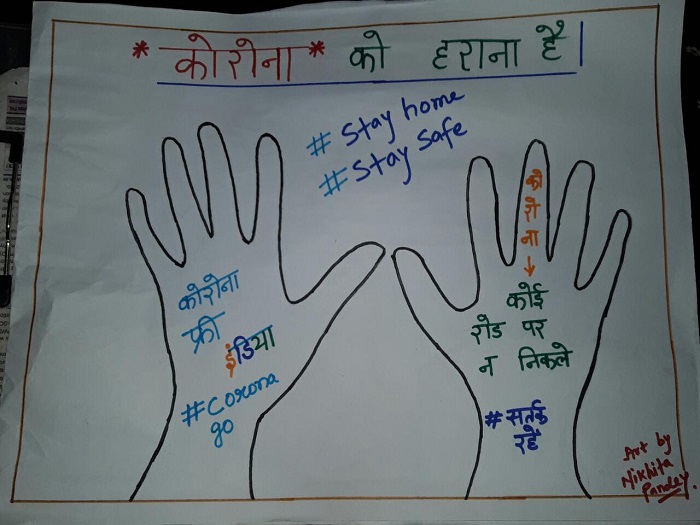 * कोरोना * को हराना है|
# Stay home
# Stay safe
कोरोना
फ्री
इंडिया
#Corona
go
को
रो
ना
↓
कोई
रोड पर
न निकले
#सर्तक
रहें
Art by
Nikhita
Pandey.